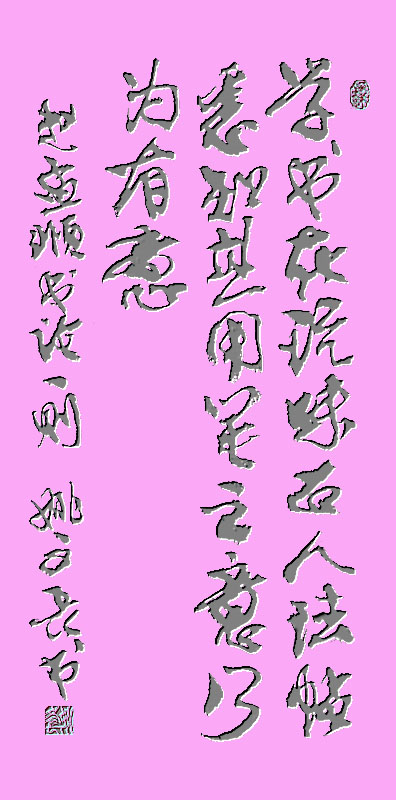 学书在玩味古人法帖
悉知其用笔之意乃
为有
赵孟頫书论一则 姚 书